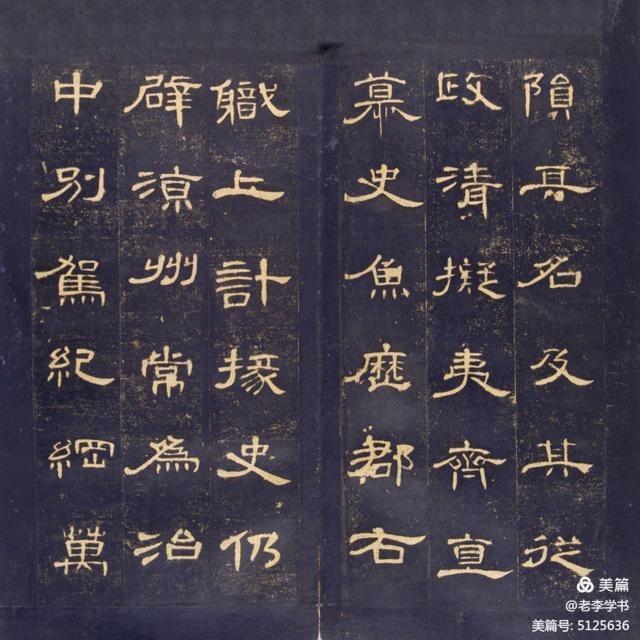 隕其名及其從
政清擬夷齊直
慕史魚歷郡右
職上計掾史仍
辟涼州常為治
中別駕紀綱萬
美篇
@老李学书
美篇号: 5125636